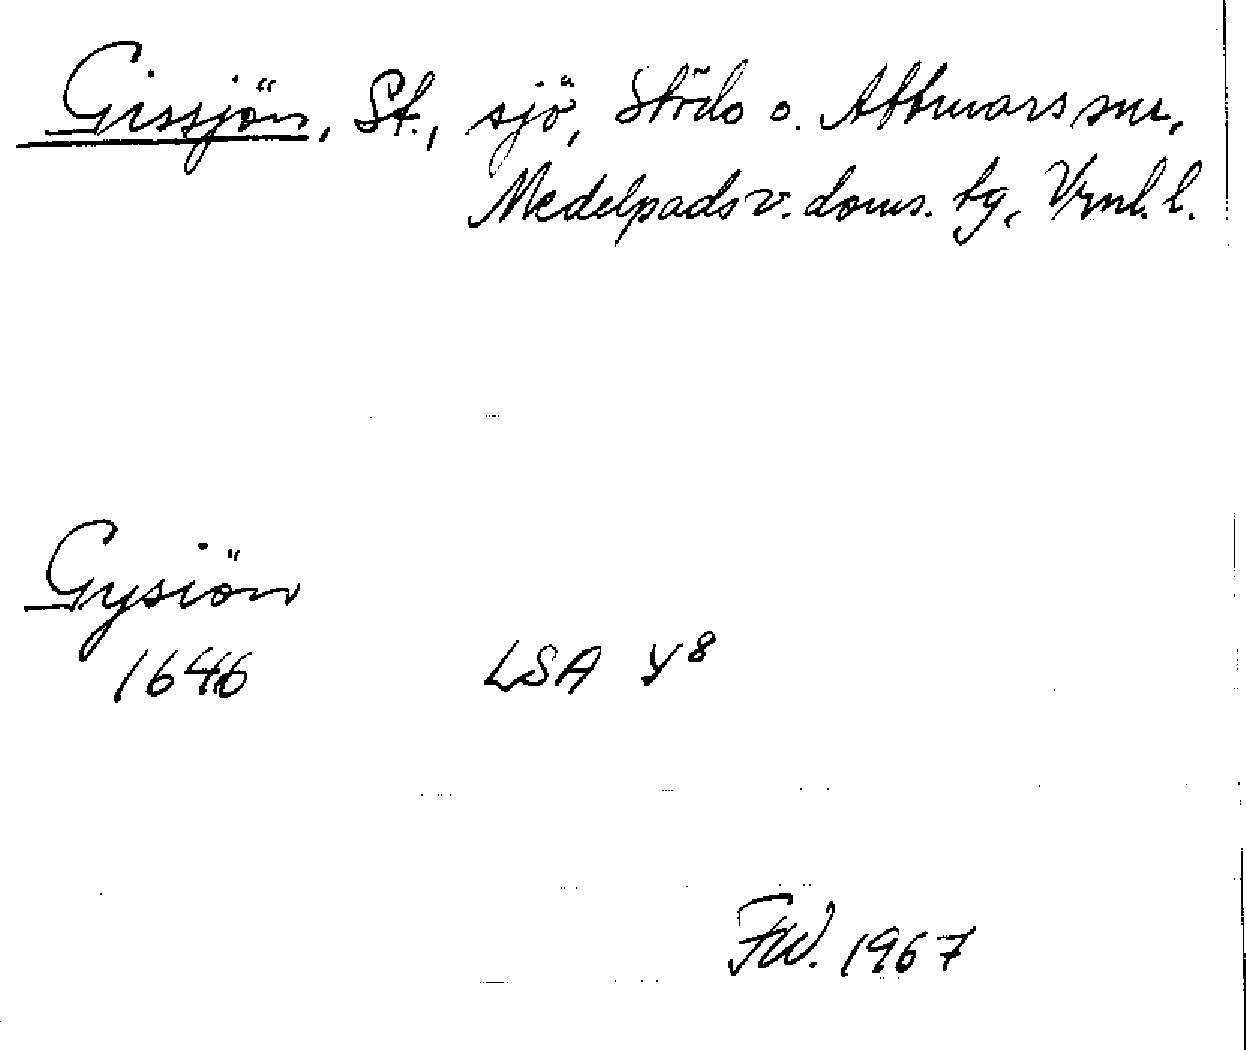 Gissjön, St., sjö, Stöde o. Attmars snr,
Medelpads v. doms. tg, Vrnl. l.
Gysiön
1646 LSA Y8
FW. 1967